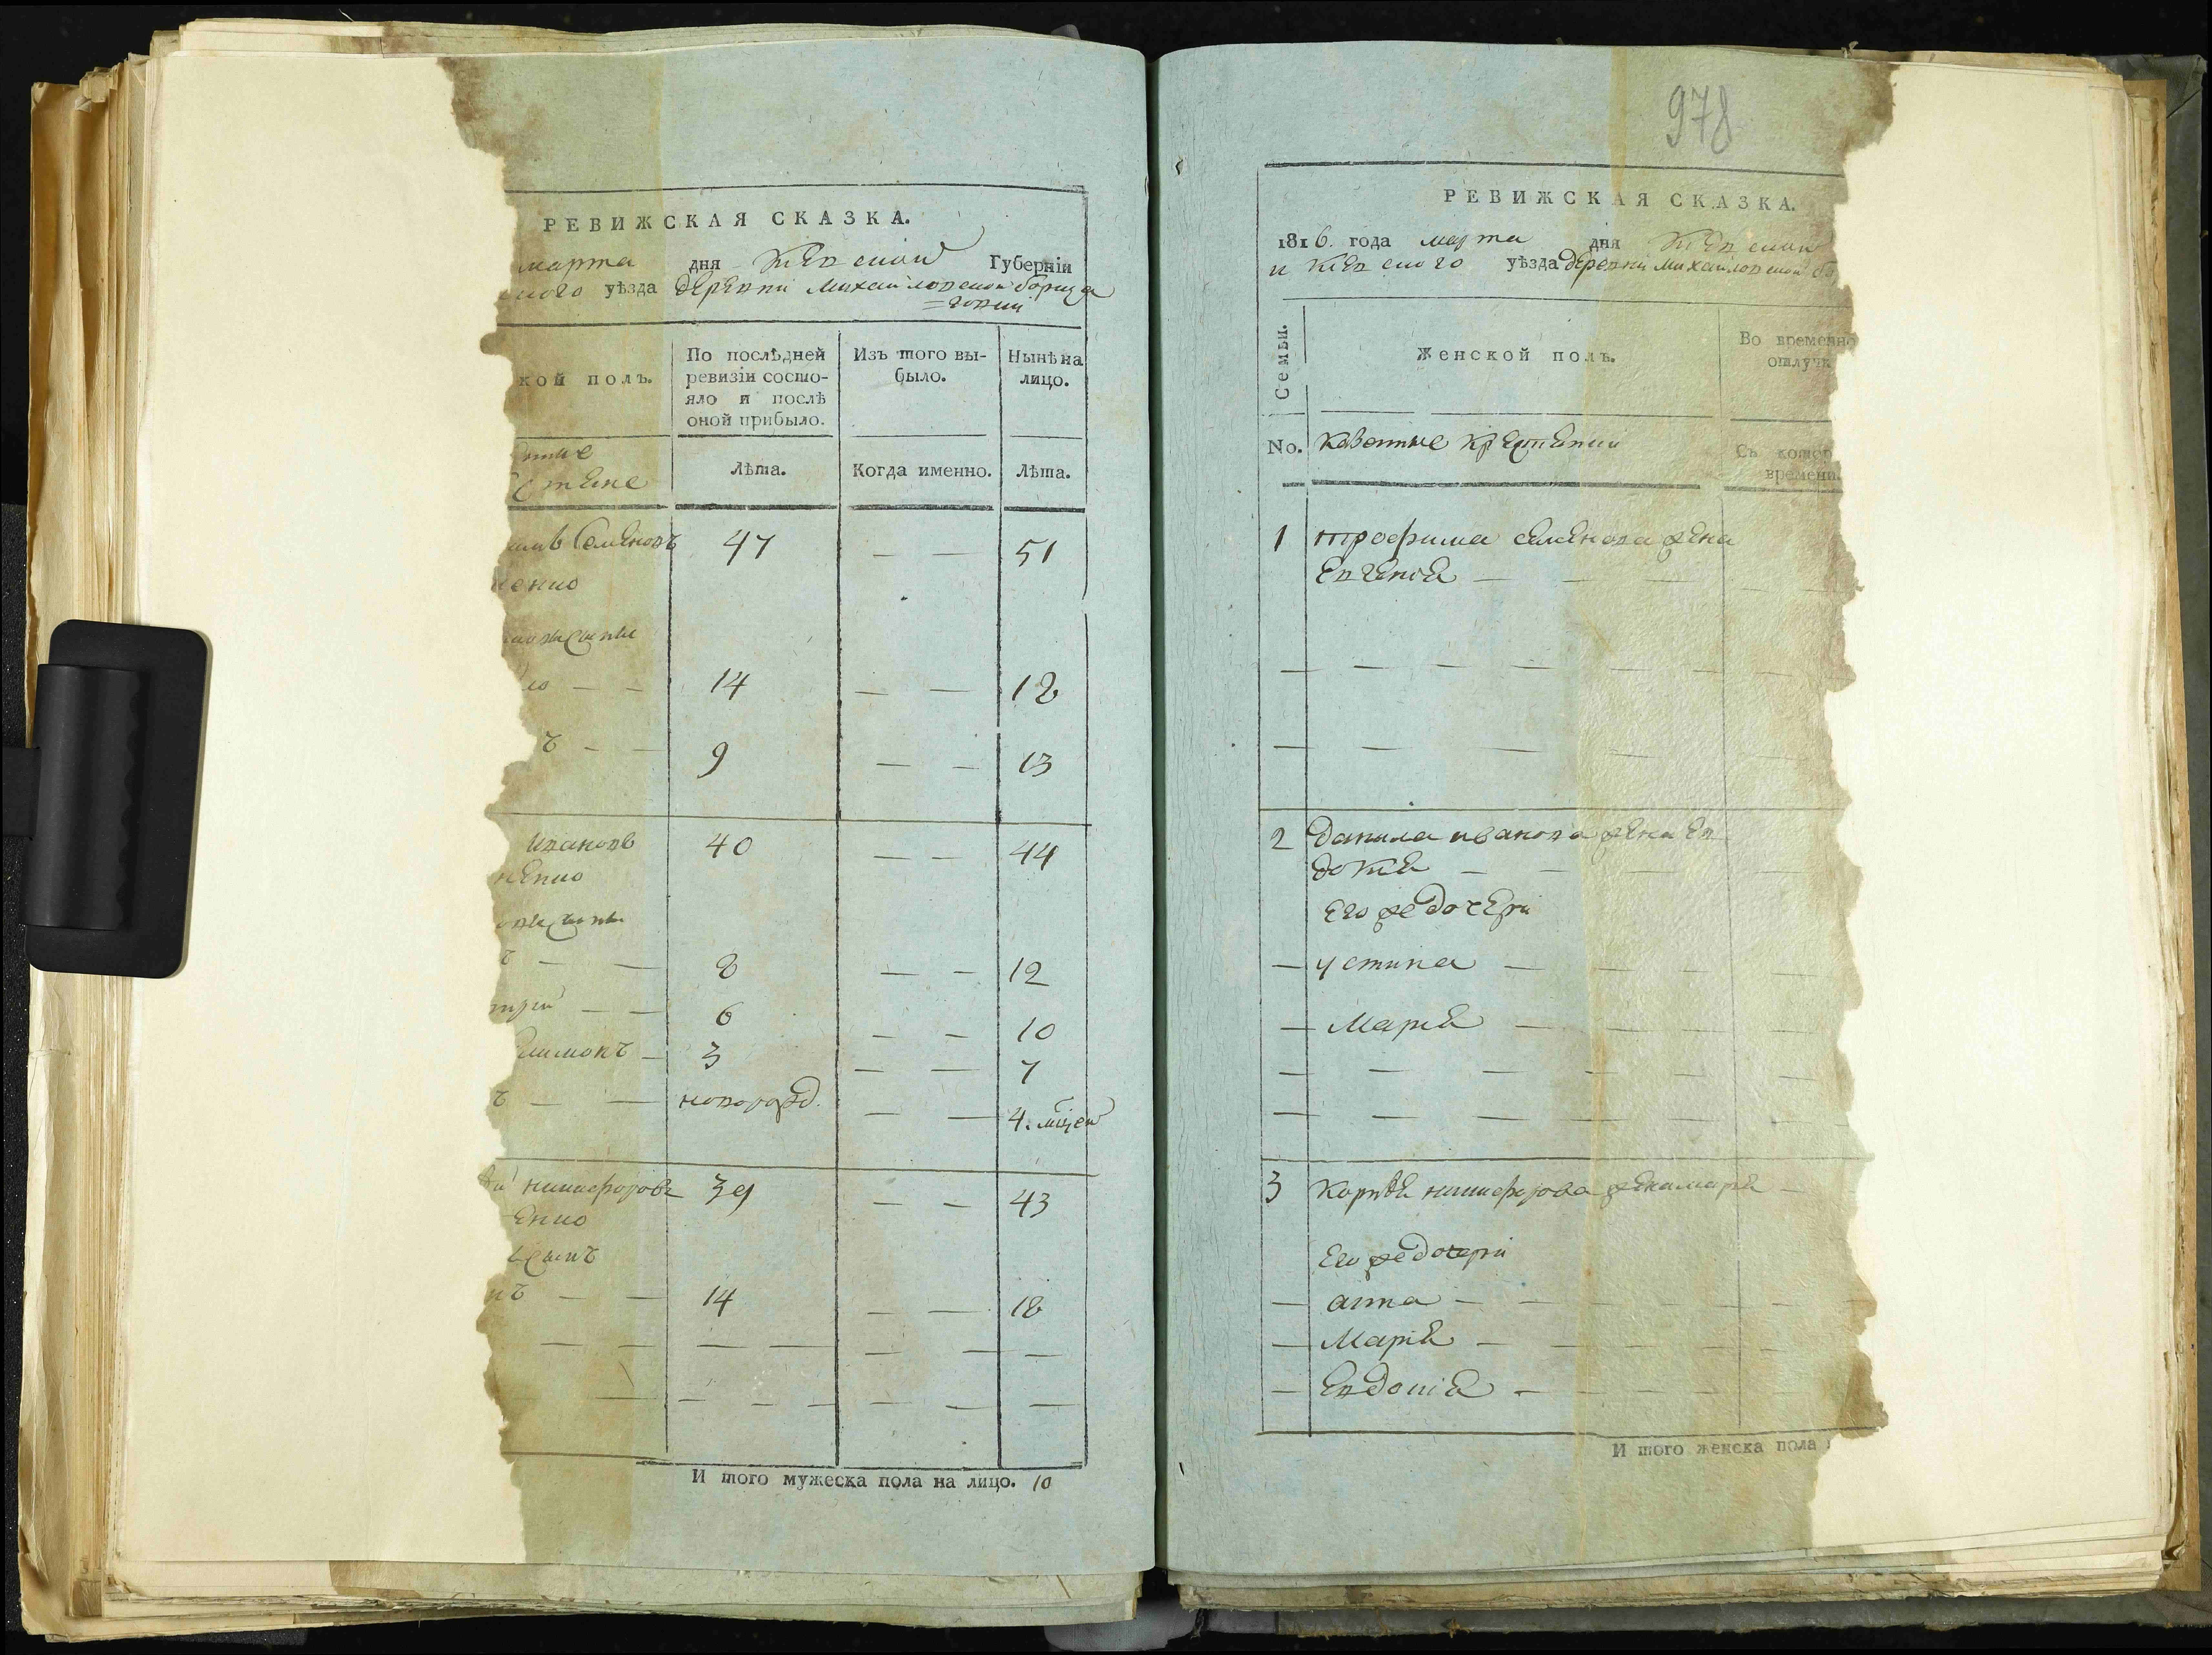 РЕВИЖСКАЯ СКАЗКА.
марта дня Киевской Губерніи
ского уѣзда деревни Михайловской борща
=говки
кой полъ.
По послѣдней ревизіи состояло и послѣ оной прибыло.
Изъ того выбыло.
Нынѣ на лицо.
Лѣта.
Когда именно.
Лѣта.
Семеновъ 47 — — 51
14 — — 18
ъ — — 9 — — 13
Ивановъ 40 — — 44
ъ — — 8 — — 12
трій — — 6 — — 10
3 — — 7
ъ — — новорожд. — — 4. мцей
никифоровъ 39 — — 43
сынъ
нъ — — 14 — — 18
И того мужеска пола на лицо. 10
978
РЕВИЖСКАЯ СКАЗКА.
1816. года марта дня Киевской
и Киевского уѣзда деревни Михайловской бо
Семьи.
Женской полъ.
Во временно отлучк
No. Казенные крестьяни
Съ котор времени.
1 трофима семенова жена
Евгенія —
2 Данила иванова жена Ев
докія —
Его же дочери
— устина —
— Марія —
3 Корнѣя никифорова жена марія —
Его же дочери
— анна —
— Марія —
— Евдокія —
И того женска пола